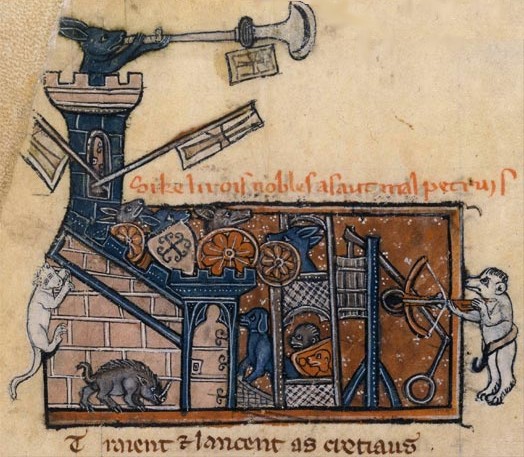 Si ke li rois nobles asaut mal petruis
T raient ⁊ lancent as cretiaus .